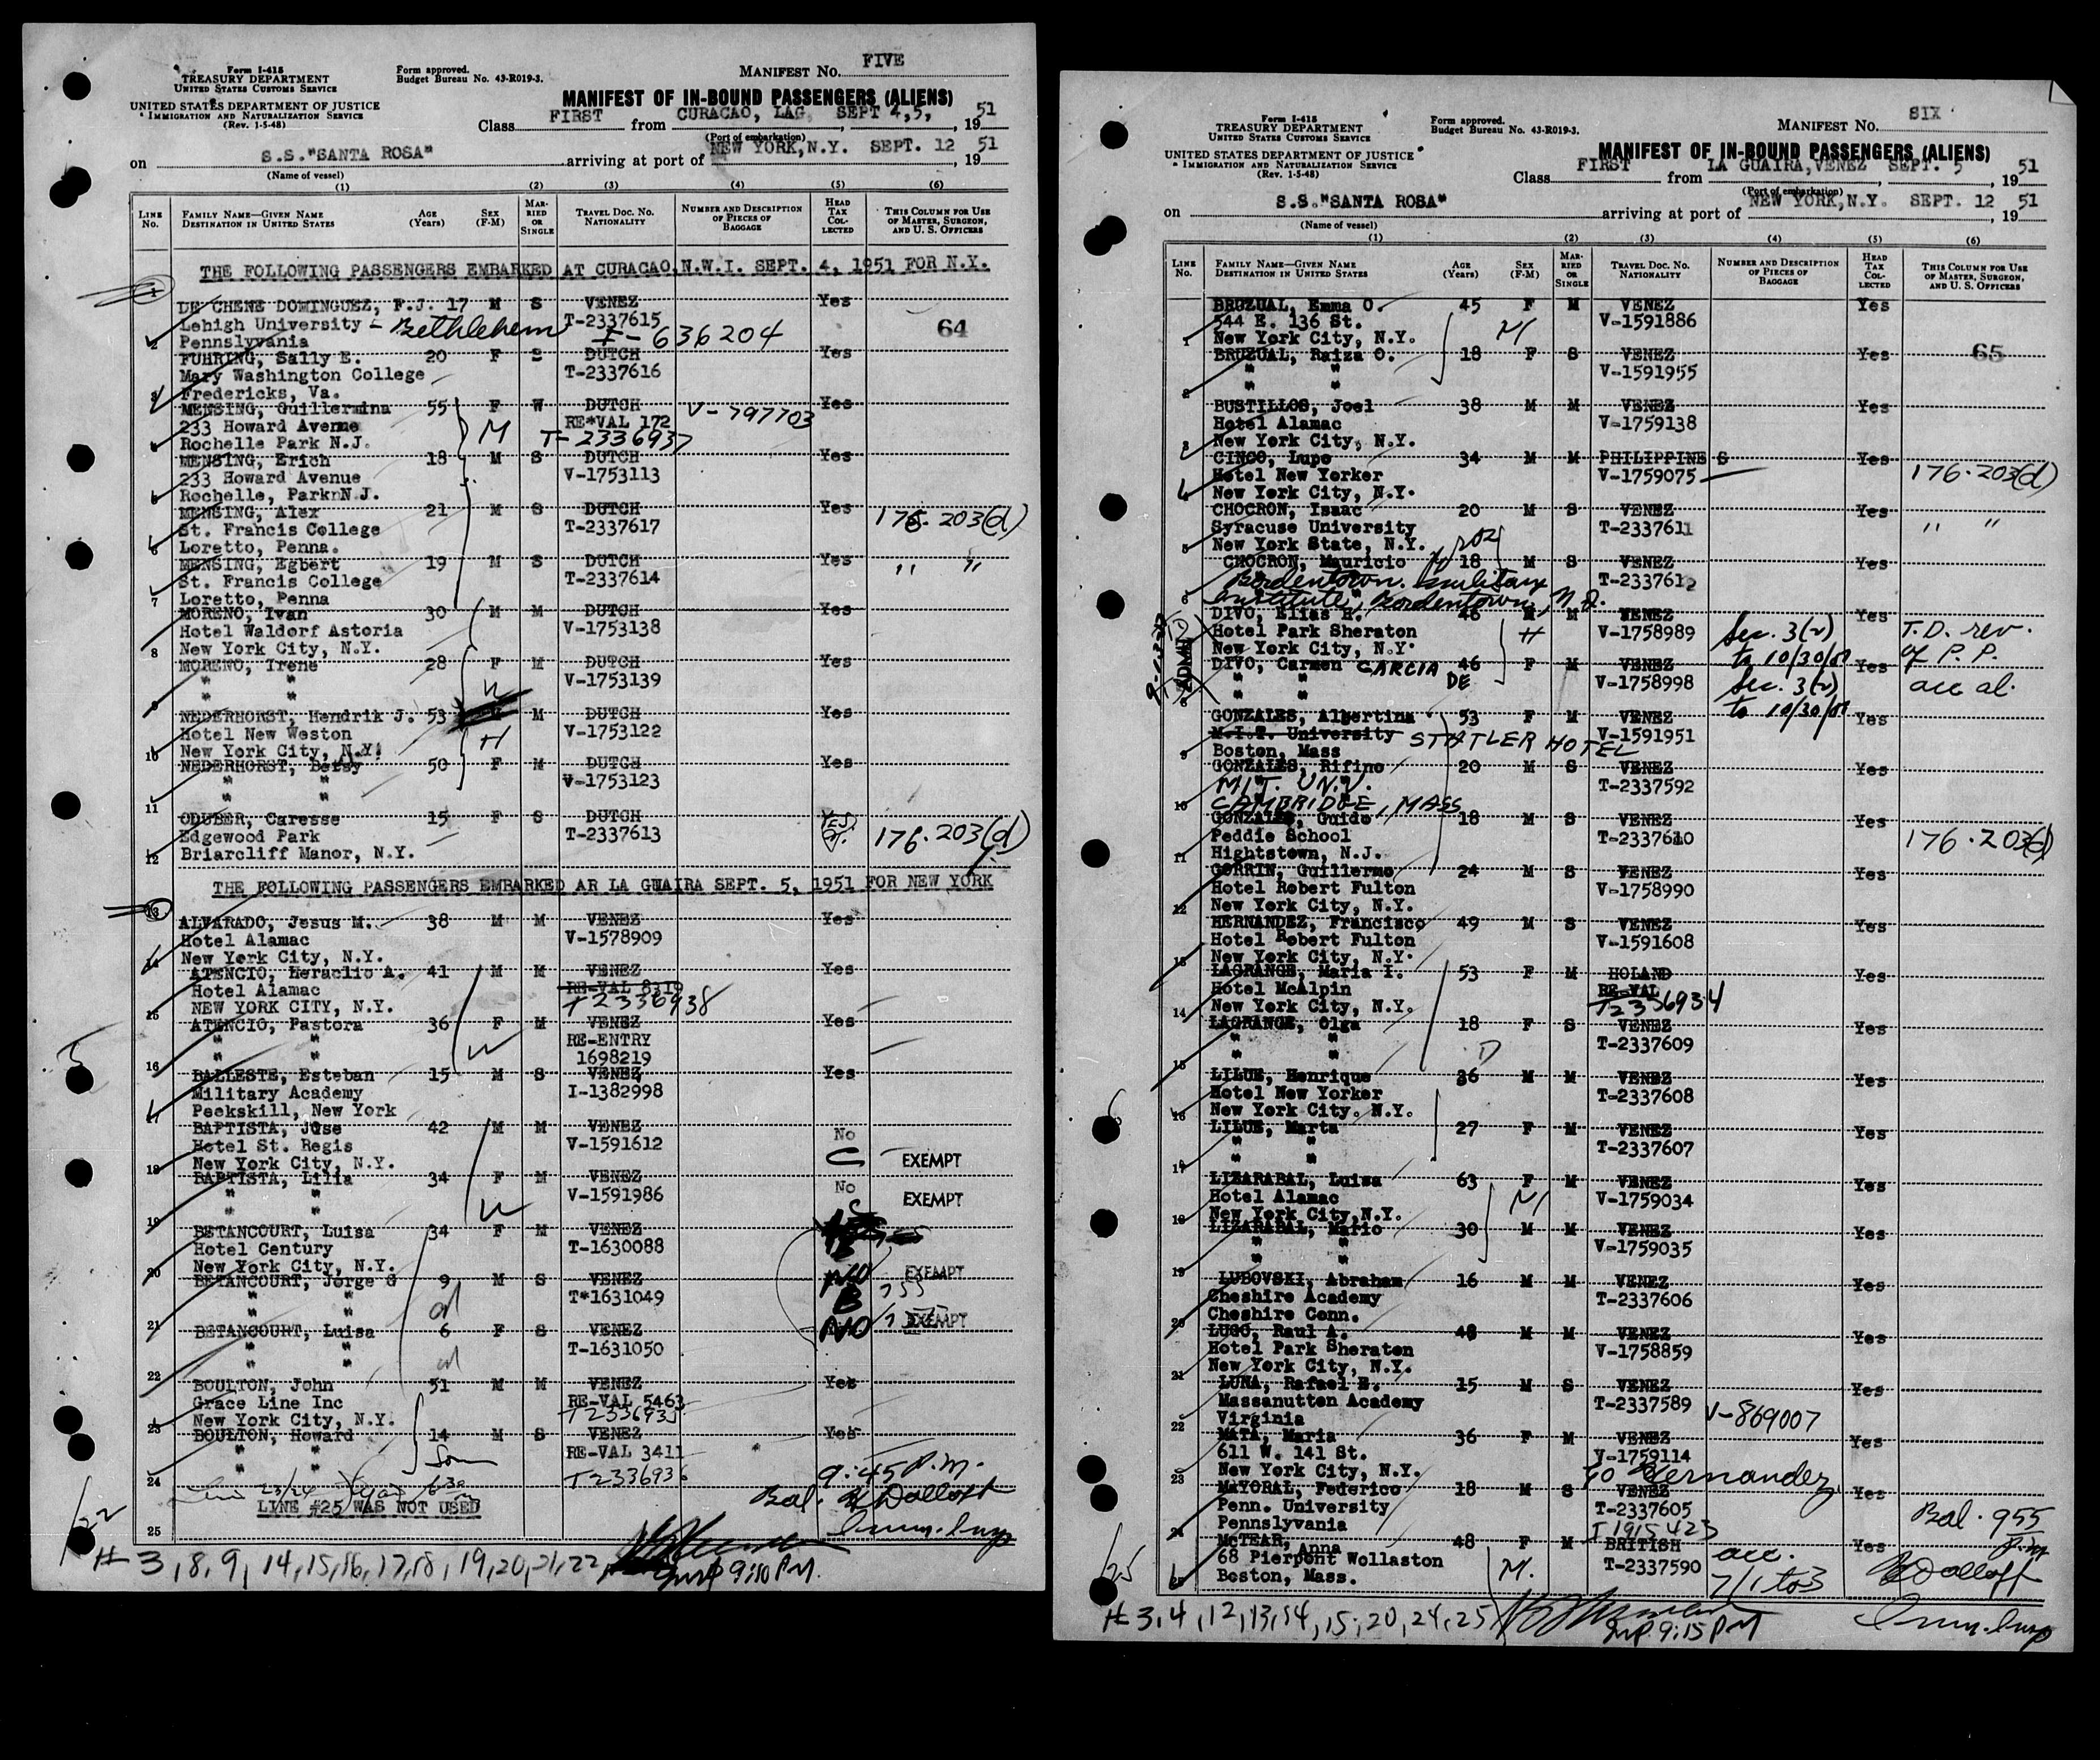 Form I-418
TREASURY DEPARTMENT
UNITED STATES CUSTOMS SERVICE
Form approved.
Budget Bureau No. 43-R019-3.
MANIFEST NO. FIVE
UNITED STATES DEPARTMENT OF JUSTICE
IMMIGRATION AND NATURALIZATION SERVICE
(Rev. 1-5-48)
MANIFEST OF IN-BOUND PASSENGERS (ALIENS)
Class FIRST from CURACAO, LAG. SEPT 4,5, , 19 51
(Port of embarkation)
on S.S."SANTA ROSA" arriving at port of NEW YORK,N.Y. SEPT. 12 , 19 51
(Name of vessel)
(1) (2) (3) (4) (5) (6)
LINE No. FAMILY NAME—GIVEN NAME DESTINATION IN UNITED STATES AGE (Years) SEX (F-M) MARRIED OR SINGLE TRAVEL DOC. NO. NATIONALITY NUMBER AND DESCRIPTION OF PIECES OF BAGGAGE HEAD TAX COLLECTED THIS COLUMN FOR USE OF MASTER, SURGEON, AND U. S. OFFICERS
THE FOLLOWING PASSENGERS EMBARKED AT CURACAO,N.W.I. SEPT. 4, 1951 FOR N.Y.
1 DE CHENE DOMINGUEZ, F.J. 17 M S VENEZ Yes
Lehigh University - Bethlehem T-2337615 64
2 Pennsylvania I-636204
FUHRING, Sally E. 20 F S DUTCH Yes
Mary Washington College T-2337616
3 Fredericks, Va.
MENSING, Guillermina 55 F W DUTCH V-797703 Yes
233 Howard Avenue M RE*VAL 172
4 Rochelle Park N.J. T-2336937
MENSING, Erich 18 M S DUTCH Yes
233 Howard Avenue V-1753113
5 Rochelle, ParknN.J.
MENSING, Alex 21 M S DUTCH Yes 176.203(d)
St. Francis College T-2337617
6 Loretto, Penna.
MENSING, Egbert 19 M S DUTCH Yes " "
St. Francis College T-2337614
7 Loretto, Penna
MORENO, Ivan 30 M M DUTCH Yes
Hotel Waldorf Astoria V-1753138
8 New York City, N.Y.
MORENO, Irene 28 F M DUTCH Yes
" " V-1753139
9 " " W
NEDERHORST, Hendrik J. 53 M M DUTCH Yes
Hotel New Weston V-1753122
10 New York City, N.Y. H
NEDERHORST, Betsy 50 F M DUTCH Yes
" " V-1753123
11 " "
ODUBER, Caresse 15 F S DUTCH YES
Edgewood Park T-2337613 176.203(d)
12 Briarcliff Manor, N.Y.
THE FOLLOWING PASSENGERS EMBARKED AR LA GUAIRA SEPT. 5, 1951 FOR NEW YORK
13 ALVARADO, Jesus M. 38 M M VENEZ Yes
Hotel Alamac V-1578909
14 New York City, N.Y.
ATENCIO, Heraclio A. 41 M M VENEZ Yes
Hotel Alamac RE-VAL 8319
15 NEW YORK CITY, N.Y. T2336938
ATENCIO, Pastora 36 F M VENEZ Yes
" " RE-ENTRY
16 " " W 1698219
BALLESTE, Esteban 15 M S VENEZ Yes
Military Academy I-1382998
17 Peekskill, New York
BAPTISTA, Jose 42 M M VENEZ No
Hotel St. Regis V-1591612 C EXEMPT
18 New York City, N.Y.
BAPTISTA, Lilia 34 F M VENEZ No
" " V-1591986 EXEMPT
19 " " W
BETANCOURT, Luisa 34 F M VENEZ
Hotel Century T-1630088
20 New York City, N.Y.
BETANCOURT, Jorge G 9 M S VENEZ NO EXEMPT
" " T*1631049 B
21 " "
BETANCOURT, Luisa 6 F S VENEZ NO EXEMPT
" " T-1631050
22 " "
BOULTON, John 51 M M VENEZ Yes
Grace Line Inc RE-VAL 5463
23 New York City, N.Y.
BOULTON, Howard 14 M S VENEZ Yes
" " RE-VAL 3411
24 " " Son T2336936 9:45 P.M.
LINE #25 WAS NOT USED Bal.
25 Imm. Insp
# 3, 8, 9, 14, 15, 16, 17, 18, 19, 20, 21, 22, Insp 9:10 P.M.
Form I-418
TREASURY DEPARTMENT
UNITED STATES CUSTOMS SERVICE
Form approved.
Budget Bureau No. 43-R019-3.
MANIFEST NO. SIX
UNITED STATES DEPARTMENT OF JUSTICE
IMMIGRATION AND NATURALIZATION SERVICE
(Rev. 1-5-48)
MANIFEST OF IN-BOUND PASSENGERS (ALIENS)
Class FIRST from LA GUAIRA,VENEZ SEPT. 5 , 19 51
(Port of embarkation)
on S.S."SANTA ROSA" arriving at port of NEW YORK,N.Y. SEPT. 12 , 19 51
(Name of vessel)
(1) (2) (3) (4) (5) (6)
LINE No. FAMILY NAME—GIVEN NAME DESTINATION IN UNITED STATES AGE (Years) SEX (F-M) MARRIED OR SINGLE TRAVEL DOC. NO. NATIONALITY NUMBER AND DESCRIPTION OF PIECES OF BAGGAGE HEAD TAX COLLECTED THIS COLUMN FOR USE OF MASTER, SURGEON, AND U. S. OFFICERS
BRUZUAL, Emma O. 45 F M VENEZ Yes
544 E. 136 St. M V-1591886
1 New York City, N.Y.
BRUZUAL, Raiza O. 18 F S VENEZ Yes 65
" " V-1591955
2 " "
BUSTILLOS, Joel 38 M M VENEZ Yes
Hotel Alamac V-1759138
3 New York City, N.Y.
CINCO, Lupo 34 M M PHILIPPINE S Yes
Hotel New Yorker V-1759075 176.203(d)
4 New York City, N.Y.
CHOCRON, Isaac 20 M S VENEZ Yes
Syracuse University T-2337611 " "
5 New York State, N.Y.
CHOCRON, Mauricio 18 M S VENEZ Yes
Bordentown Military T-2337612
6 Institute, Bordentown, N.J.
DIVO, Elias R. 46 M M VENEZ Yes
Hotel Park Sheraton H V-1758989 Sec. 3(2) T.D. rev.
7 New York City, N.Y. to 10/30/51 of P.P.
DIVO, Carmen GARCIA DE 46 F M VENEZ Yes
" " V-1758998 Sec. 3(2) acc al.
8 " " ADMIT to 10/30/51
GONZALES, Albertina 53 F M VENEZ Yes
M.I.T. University STATLER HOTEL V-1591951
9 Boston, Mass
GONZALES, Rifino 20 M S VENEZ Yes
MIT. UNV. T-2337592
10 CAMBRIDGE, MASS
GONZALES, Guido 18 M S VENEZ Yes
Peddie School T-2337610 176.203(d)
11 Hightstown, N.J.
GORRIN, Guillermo 24 M S VENEZ Yes
Hotel Robert Fulton V-1758990
12 New York City, N.Y.
HERNANDEZ, Francisco 49 M S VENEZ Yes
Hotel Robert Fulton V-1591608
13 New York City, N.Y.
LAGRANGE, Maria I. 53 F M HOLAND Yes
Hotel McAlpin RE-VAL
14 New York City, N.Y. T2336934
LAGRANGE, Olga 18 F S VENEZ Yes
" " D T-2337609
15 " "
LILUE, Henrique 36 M M VENEZ Yes
Hotel New Yorker T-2337608
16 New York City. N.Y.
LILUE, Marta 27 F M VENEZ Yes
" " T-2337607
17 " "
LIZARABAL, Luisa 63 F M VENEZ Yes
Hotel Alamac M V-1759034
18 New York City,N.Y.
LIZARABAL, Mario 30 M M VENEZ Yes
" " V-1759035
19 " "
LUBOVSKI, Abraham 16 M M VENEZ Yes
Cheshire Academy T-2337606
20 Cheshire Conn.
LUGO, Raul A. 48 M M VENEZ Yes
Hotel Park Sheraton V-1758859
21 New York City, N.Y.
LUNA, Rafael E. 15 M S VENEZ Yes
Massanutten Academy T-2337589 V-869007
22 Virginia
MATA, Maria 36 F M VENEZ Yes
611 W. 141 St. V-1759114
23 New York City, N.Y. Go Hernandez
MAYORAL, Federico 18 M S VENEZ Yes
Penn. University T-2337605 Bal. 955
24 Pennslyvania I 1915423 P.M
McTEAR, Anna 48 F M BRITISH Yes
68 Pierpont Wollaston M. T-2337590 acc.
25 Boston, Mass. 7/1 to 3
# 3, 4, 12, 13, 14, 15, 20, 24, 25 Insp. 9:15 PM Imm. Insp